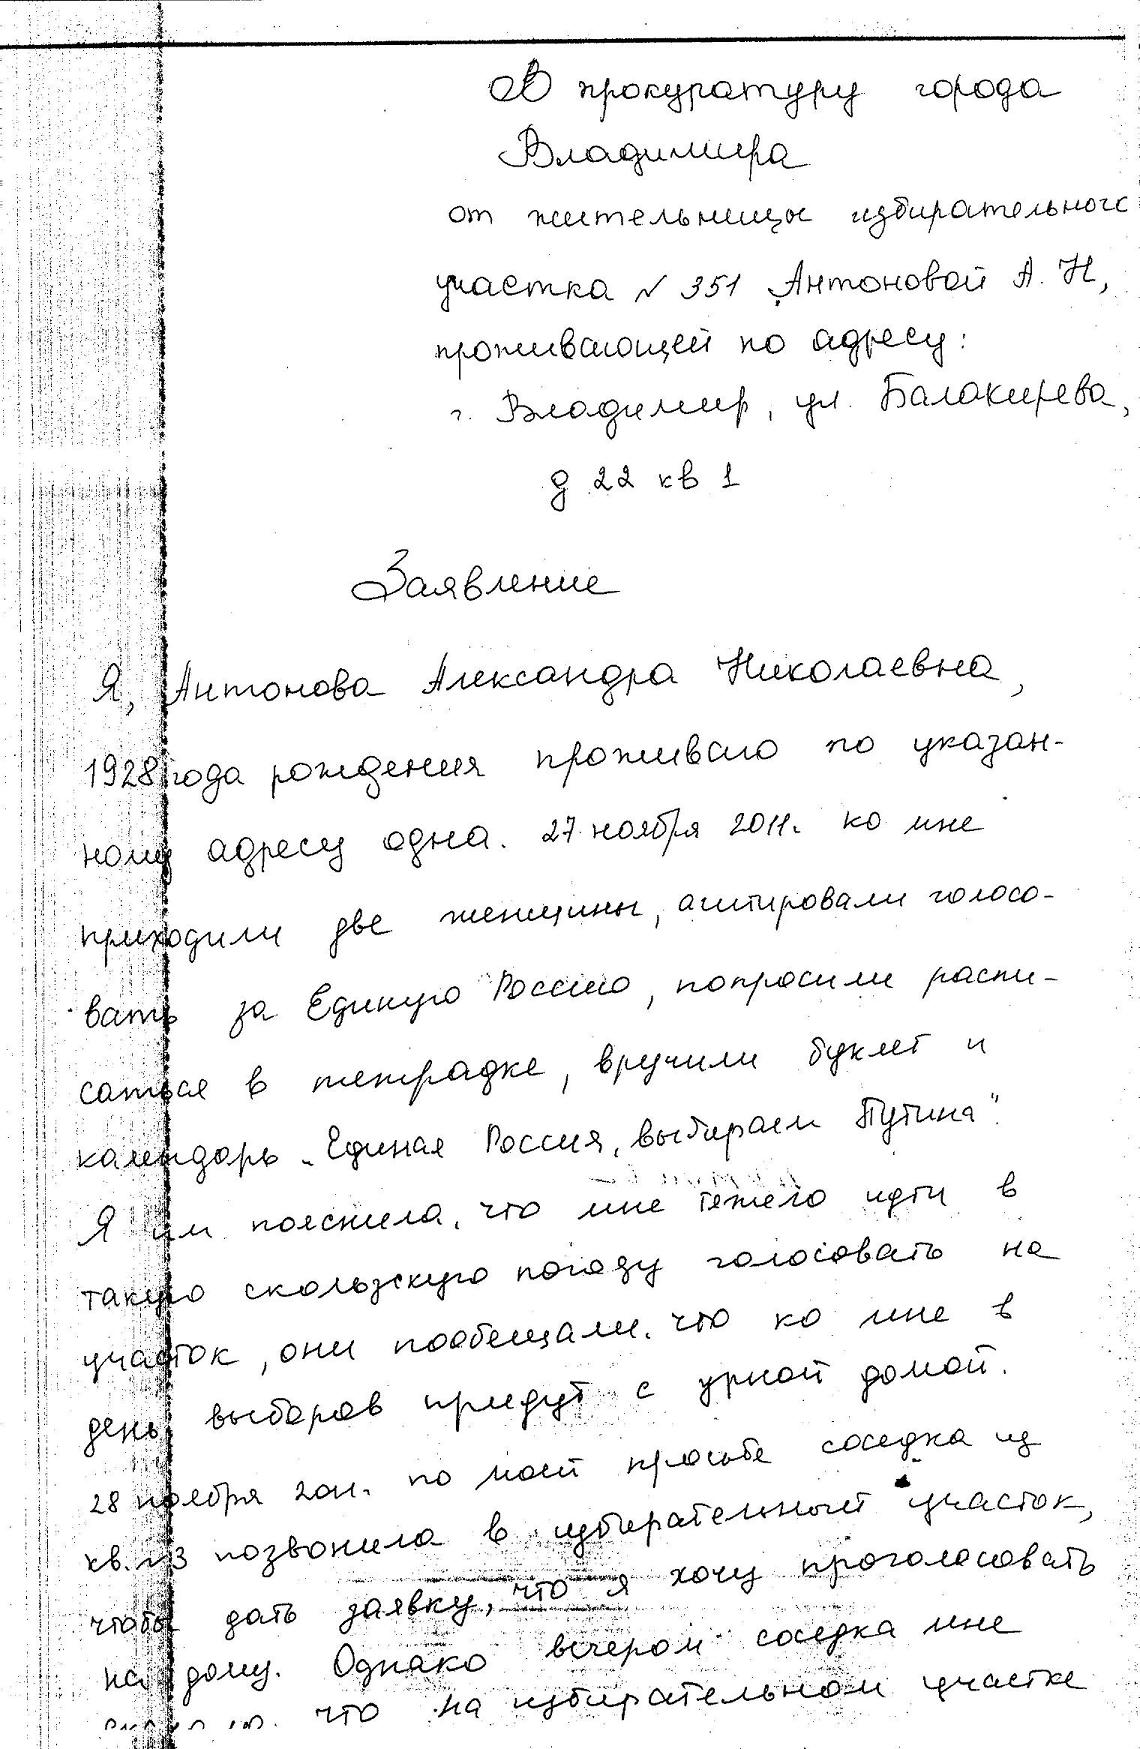 В прокуратуру города
Владимира
от жительницы избирательного
участка № 351 Антоновой А. Н,
проживающей по адресу:
г. Владимир, ул. Балакирева,
д 22 кв 1
Заявление
Я, Антонова Александра Николаевна,
1928 года рождения проживаю по указан-
ному адресу одна. 27 ноября 2011г. ко мне
приходили две женщины, агитировали голосо-
вать за Единую Россию, попросили распи-
саться в тетрадке, вручили буклет и
календарь „Единая Россия, выбираем Путина".
Я им пояснила, что мне тяжело идти в
такую скользкую погоду голосовать на
участок, они пообещали, что ко мне в
день выборов придут с урной домой.
28 ноября 2011. по моей просьбе соседка из
кв. №3 позвонила в избирательный участок,
чтобы дать заявку, что я хочу проголосовать
на дому. Однако вечером соседка мне
что на избирательном участке